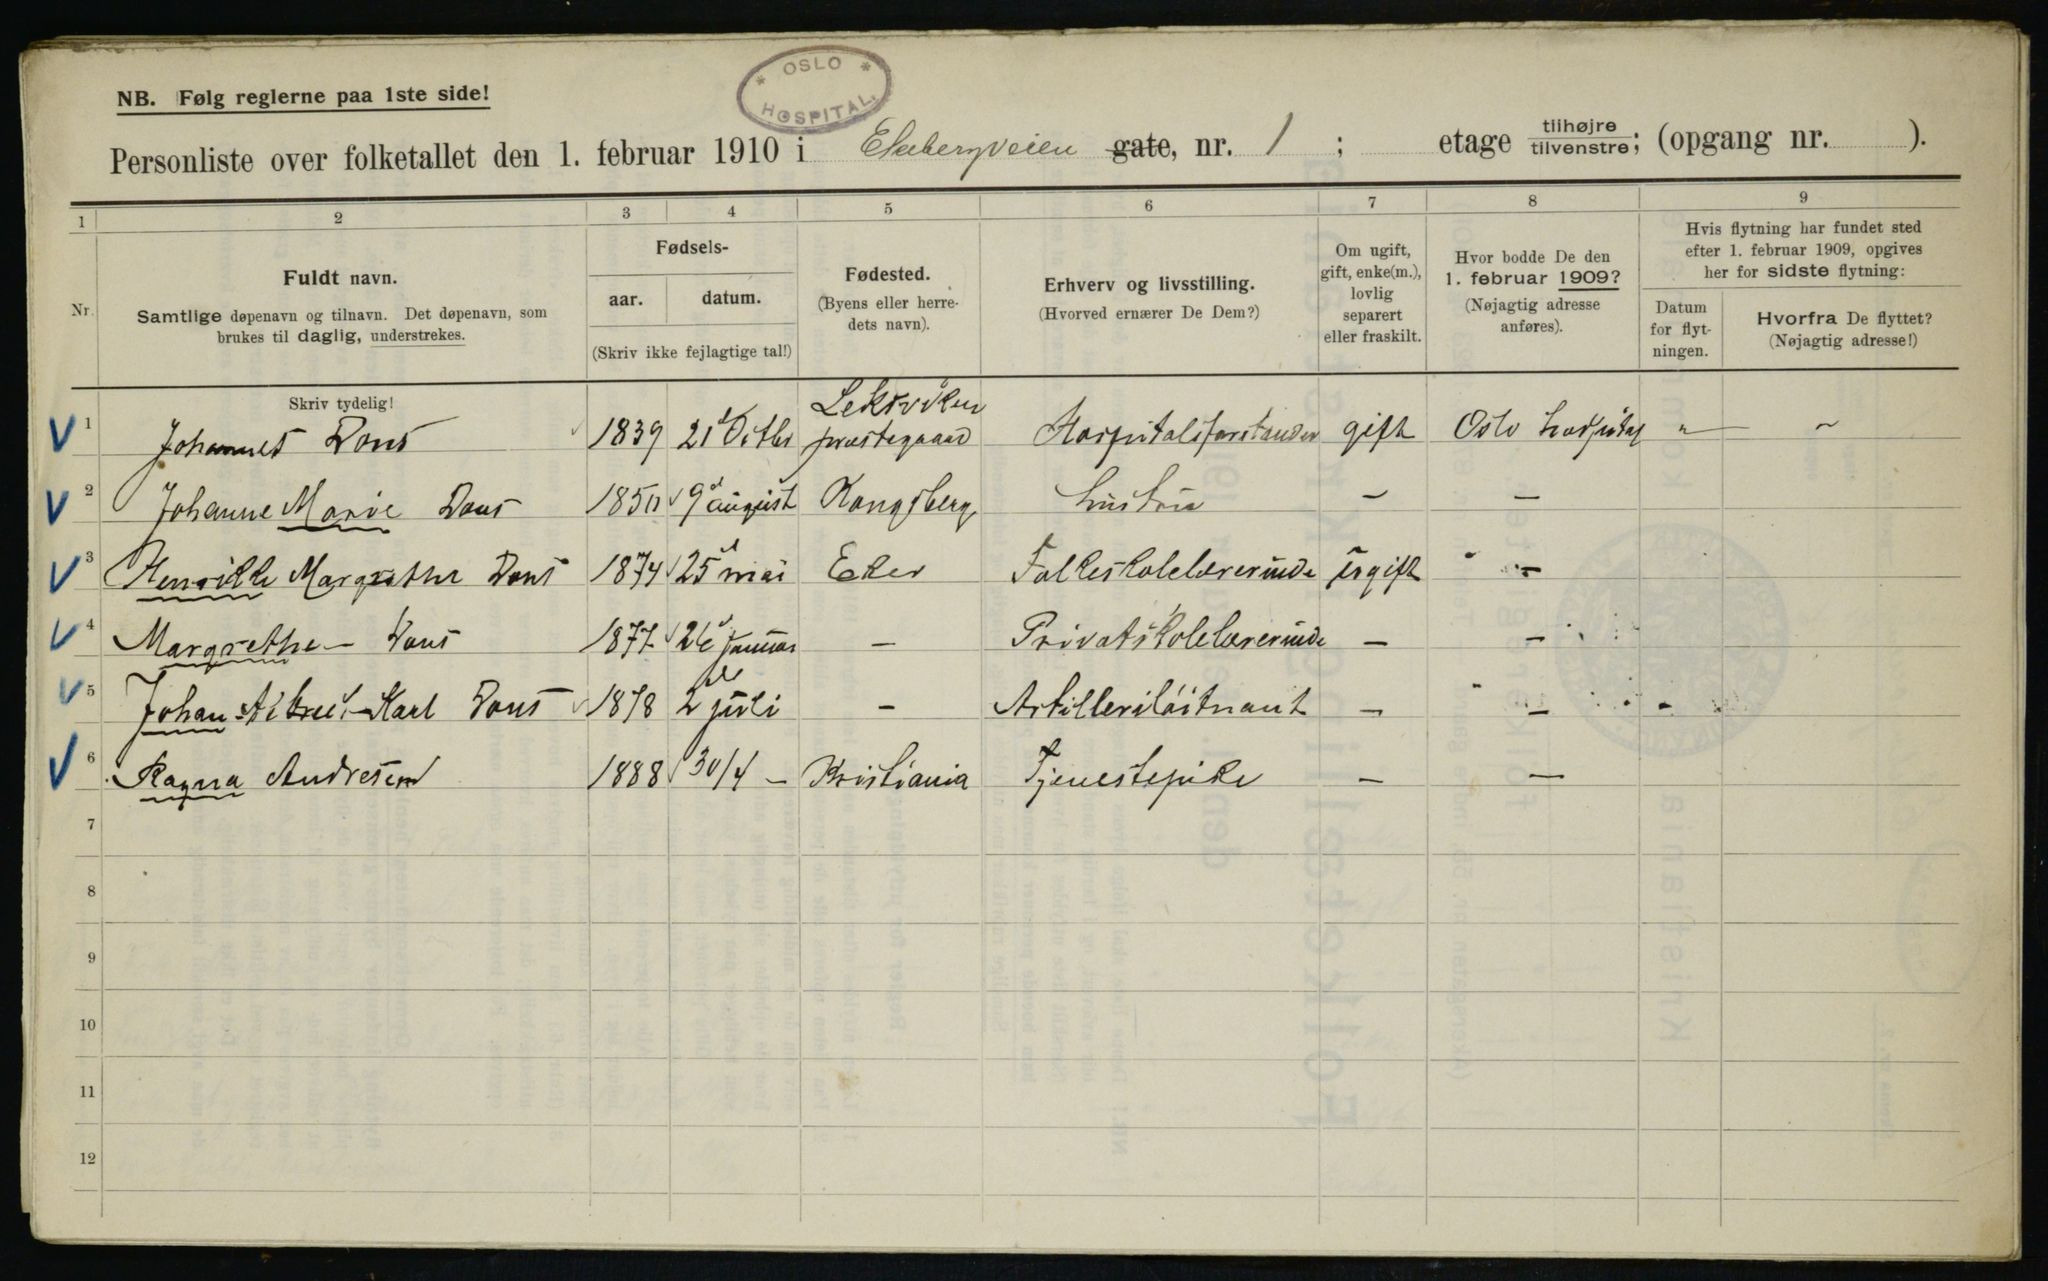 OSLO HOSPITAL.
NB. Følg reglerne paa 1ste side!
Personliste over folketallet den 1. februar 1910 i Ekebergveien gate, nr. 1 ; etage tilhøjre tilvenstre; (opgang nr. ).
1 2 3 4 5 6 7 8 9
Nr.
Fuldt navn.
Samtlige døpenavn og tilnavn. Det døpenavn, som
brukes til daglig, understrekes.
Fødsels-
aar. datum.
(Skriv ikke fejlagtige tal!)
Fødested.
(Byens eller herre-
dets navn).
Erhverv og livsstilling.
(Hvorved ernærer De Dem?)
Om ugift,
gift, enke(m.),
lovlig
separert
eller fraskilt.
Hvor bodde De den
1. februar 1909?
(Nøjagtig adresse
anføres).
Hvis flytning har fundet sted
efter 1. februar 1909, opgives
her for sidste flytning:
Datum
for flyt-
ningen.
Hvorfra De flyttet?
(Nøjagtig adresse!)
Skriv tydelig!
1 Johannes Dons 1839 21 Octbr Leksviken præstegaard Hospitalsforstander gift Oslo hospital " ~
2 Johanne Marie Dons 1850 9 august Kongsberg hustru – –
3 Henrikke Margrethe Dons 1874 25 mai Eker Folkeskolelærerinde ugift " –
4 Margrethe Dons 1877 26 Januar – Privatskolelærerinde – –
5 Johan Karl Dons 1878 2 juli – Artilleriløitnant – " –
6 Ragna Andresen 1888 30/4 – Kristiania Tjenestepike – –
7
8
9
10
11
12